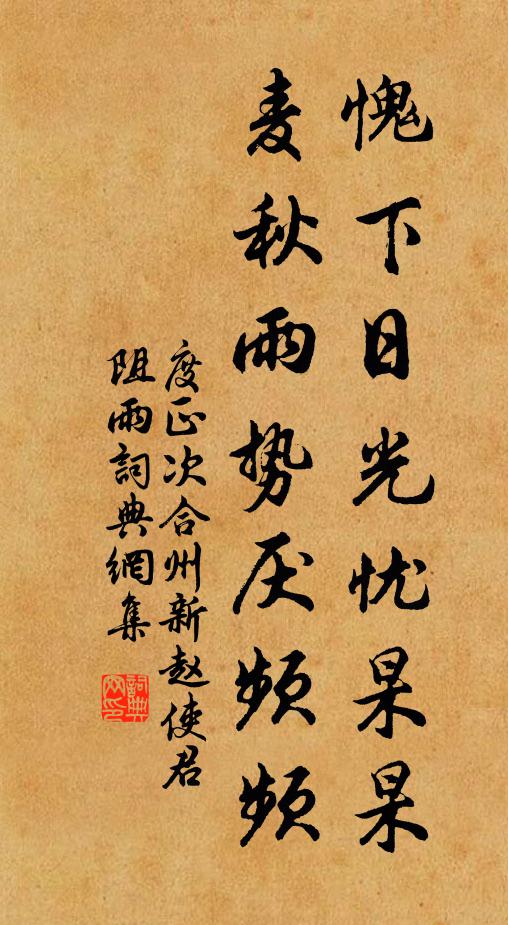 愧下日光忧杲杲
麦秋雨势厌频频
度正次合州新赵使君
阻雨詞典網集
詞典
网印